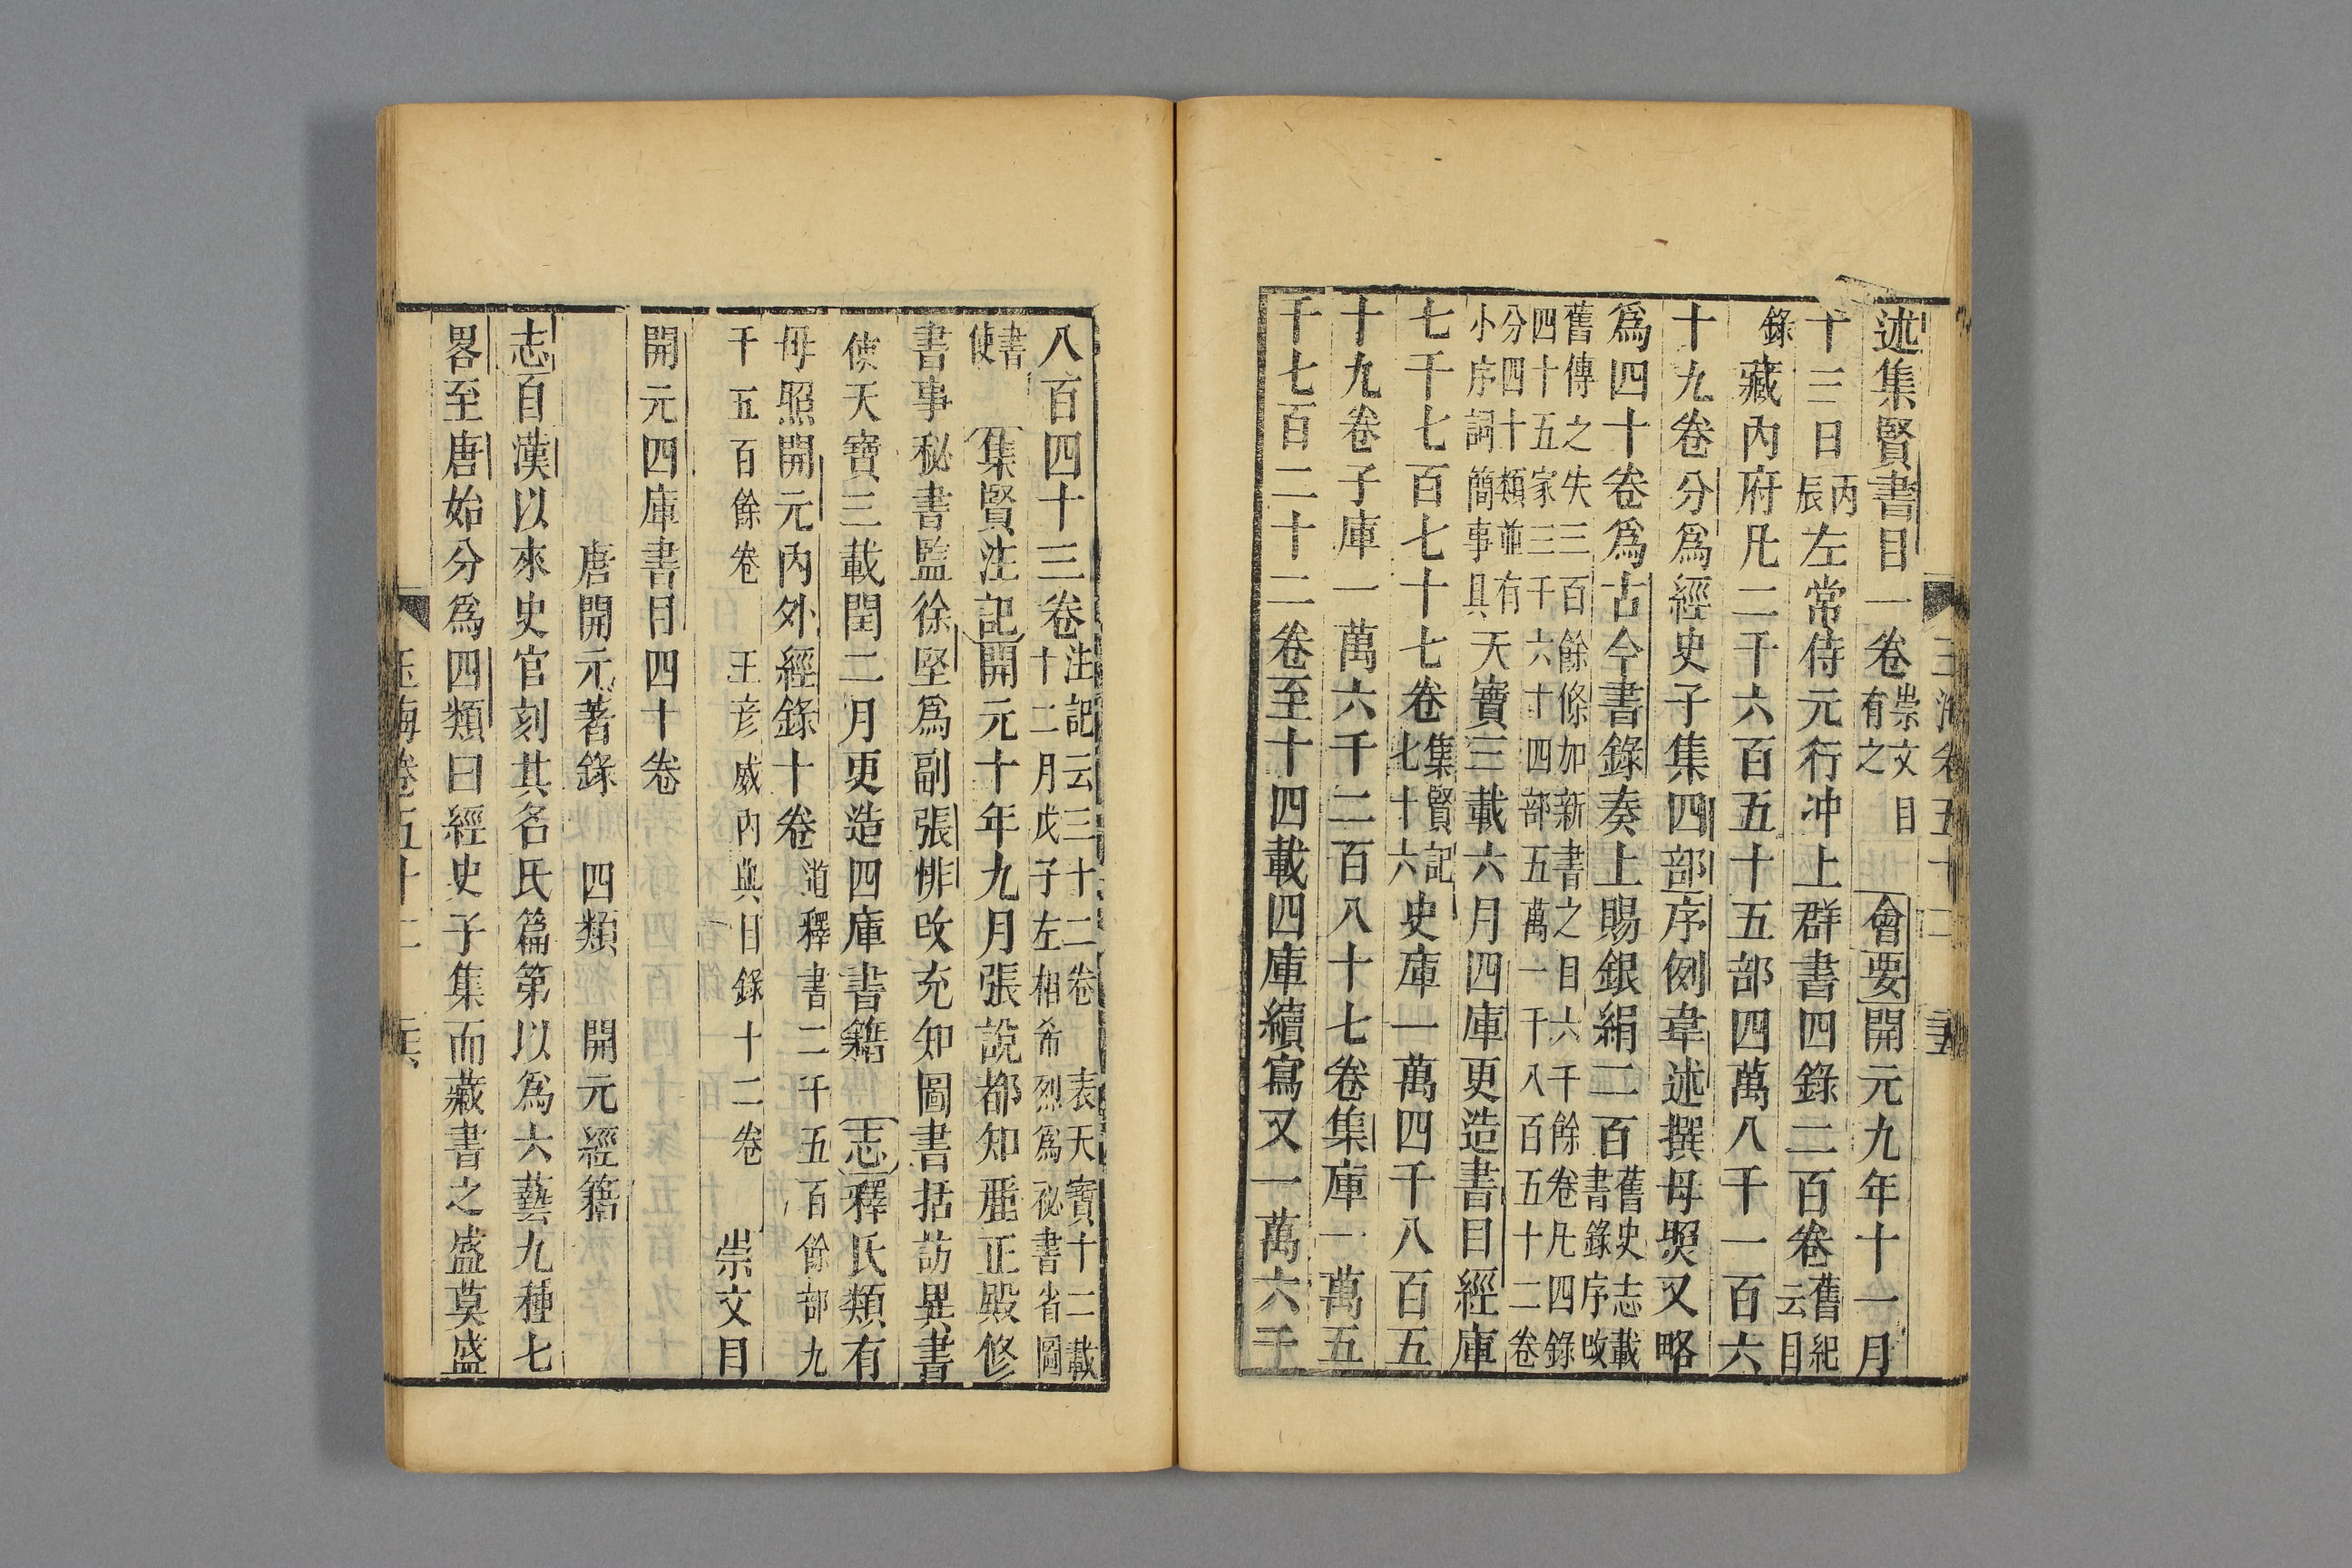 玉海卷五十二 
述集賢書目一卷崇文目有之 會要開元九年十一月
十三日丙辰左常侍元行冲上群書四錄二百卷舊紀云目
錄藏內府凡二千六百五十五部四萬八千一百六
十九卷分爲經史子集四部序例韋述撰毋煚又略
爲四十卷爲古今書錄奏上賜銀絹二百舊史志載書錄序改
舊傳之失三百餘條加新書之目六千餘卷凡四錄四十五家三千六十四部五萬一千八百五十二卷
分四十類並有小序詞簡事具天寶三載六月四庫更造書目經庫
七千七百七十七卷集賢記七十六史庫一萬四千八百五
十九卷子庫一萬六千二百八十七卷集庫一萬五
千七百二十二卷至十四載四庫續寫又一萬六千
八百四十三卷注記云三十二卷 表天寶十二載十二月戊子左相希烈爲祕書省圖
書使 集賢注記開元十年九月張說都知麗正殿修
書事秘書監徐堅爲副張悱改充知圖書括訪異書
使天寶三載閏二月更造四庫書籍 志釋氏類有
毋煚開元內外經錄十卷道釋書二千五百餘部九
千五百餘卷 王彥威內典目錄十二卷 崇文目
開元四庫書目四十卷
唐開元著錄 四類 開元經籍
志自漢以來史官列其名氏篇第以爲六藝九種七
畧至唐始分爲四類曰經史子集而藏書之盛莫盛
玉海卷五十二